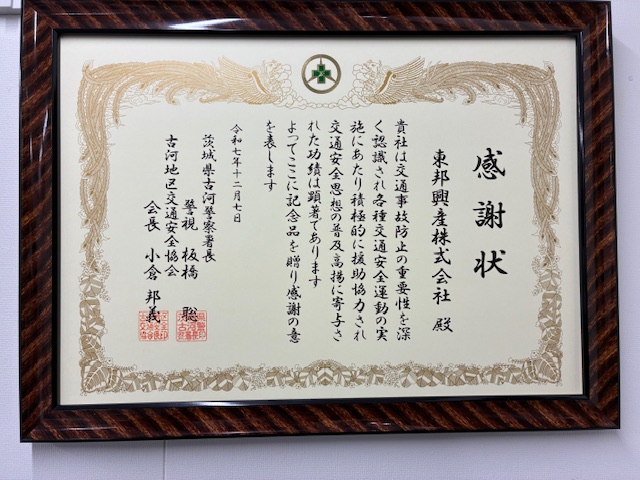 感謝状
東邦興産株式会社 殿
貴社は交通事故防止の重要性を深
く認識され各種交通安全運動の実
施にあたり積極的に援助協力され
交通安全思想の普及高揚に寄与さ
れた功績は顕著であります
よってここに記念品を贈り感謝の意
を表します
令和七年十二月七日
茨城県古河警察署長
警視 板橋 聡
古河地区交通安全協会
会長 小倉 邦義